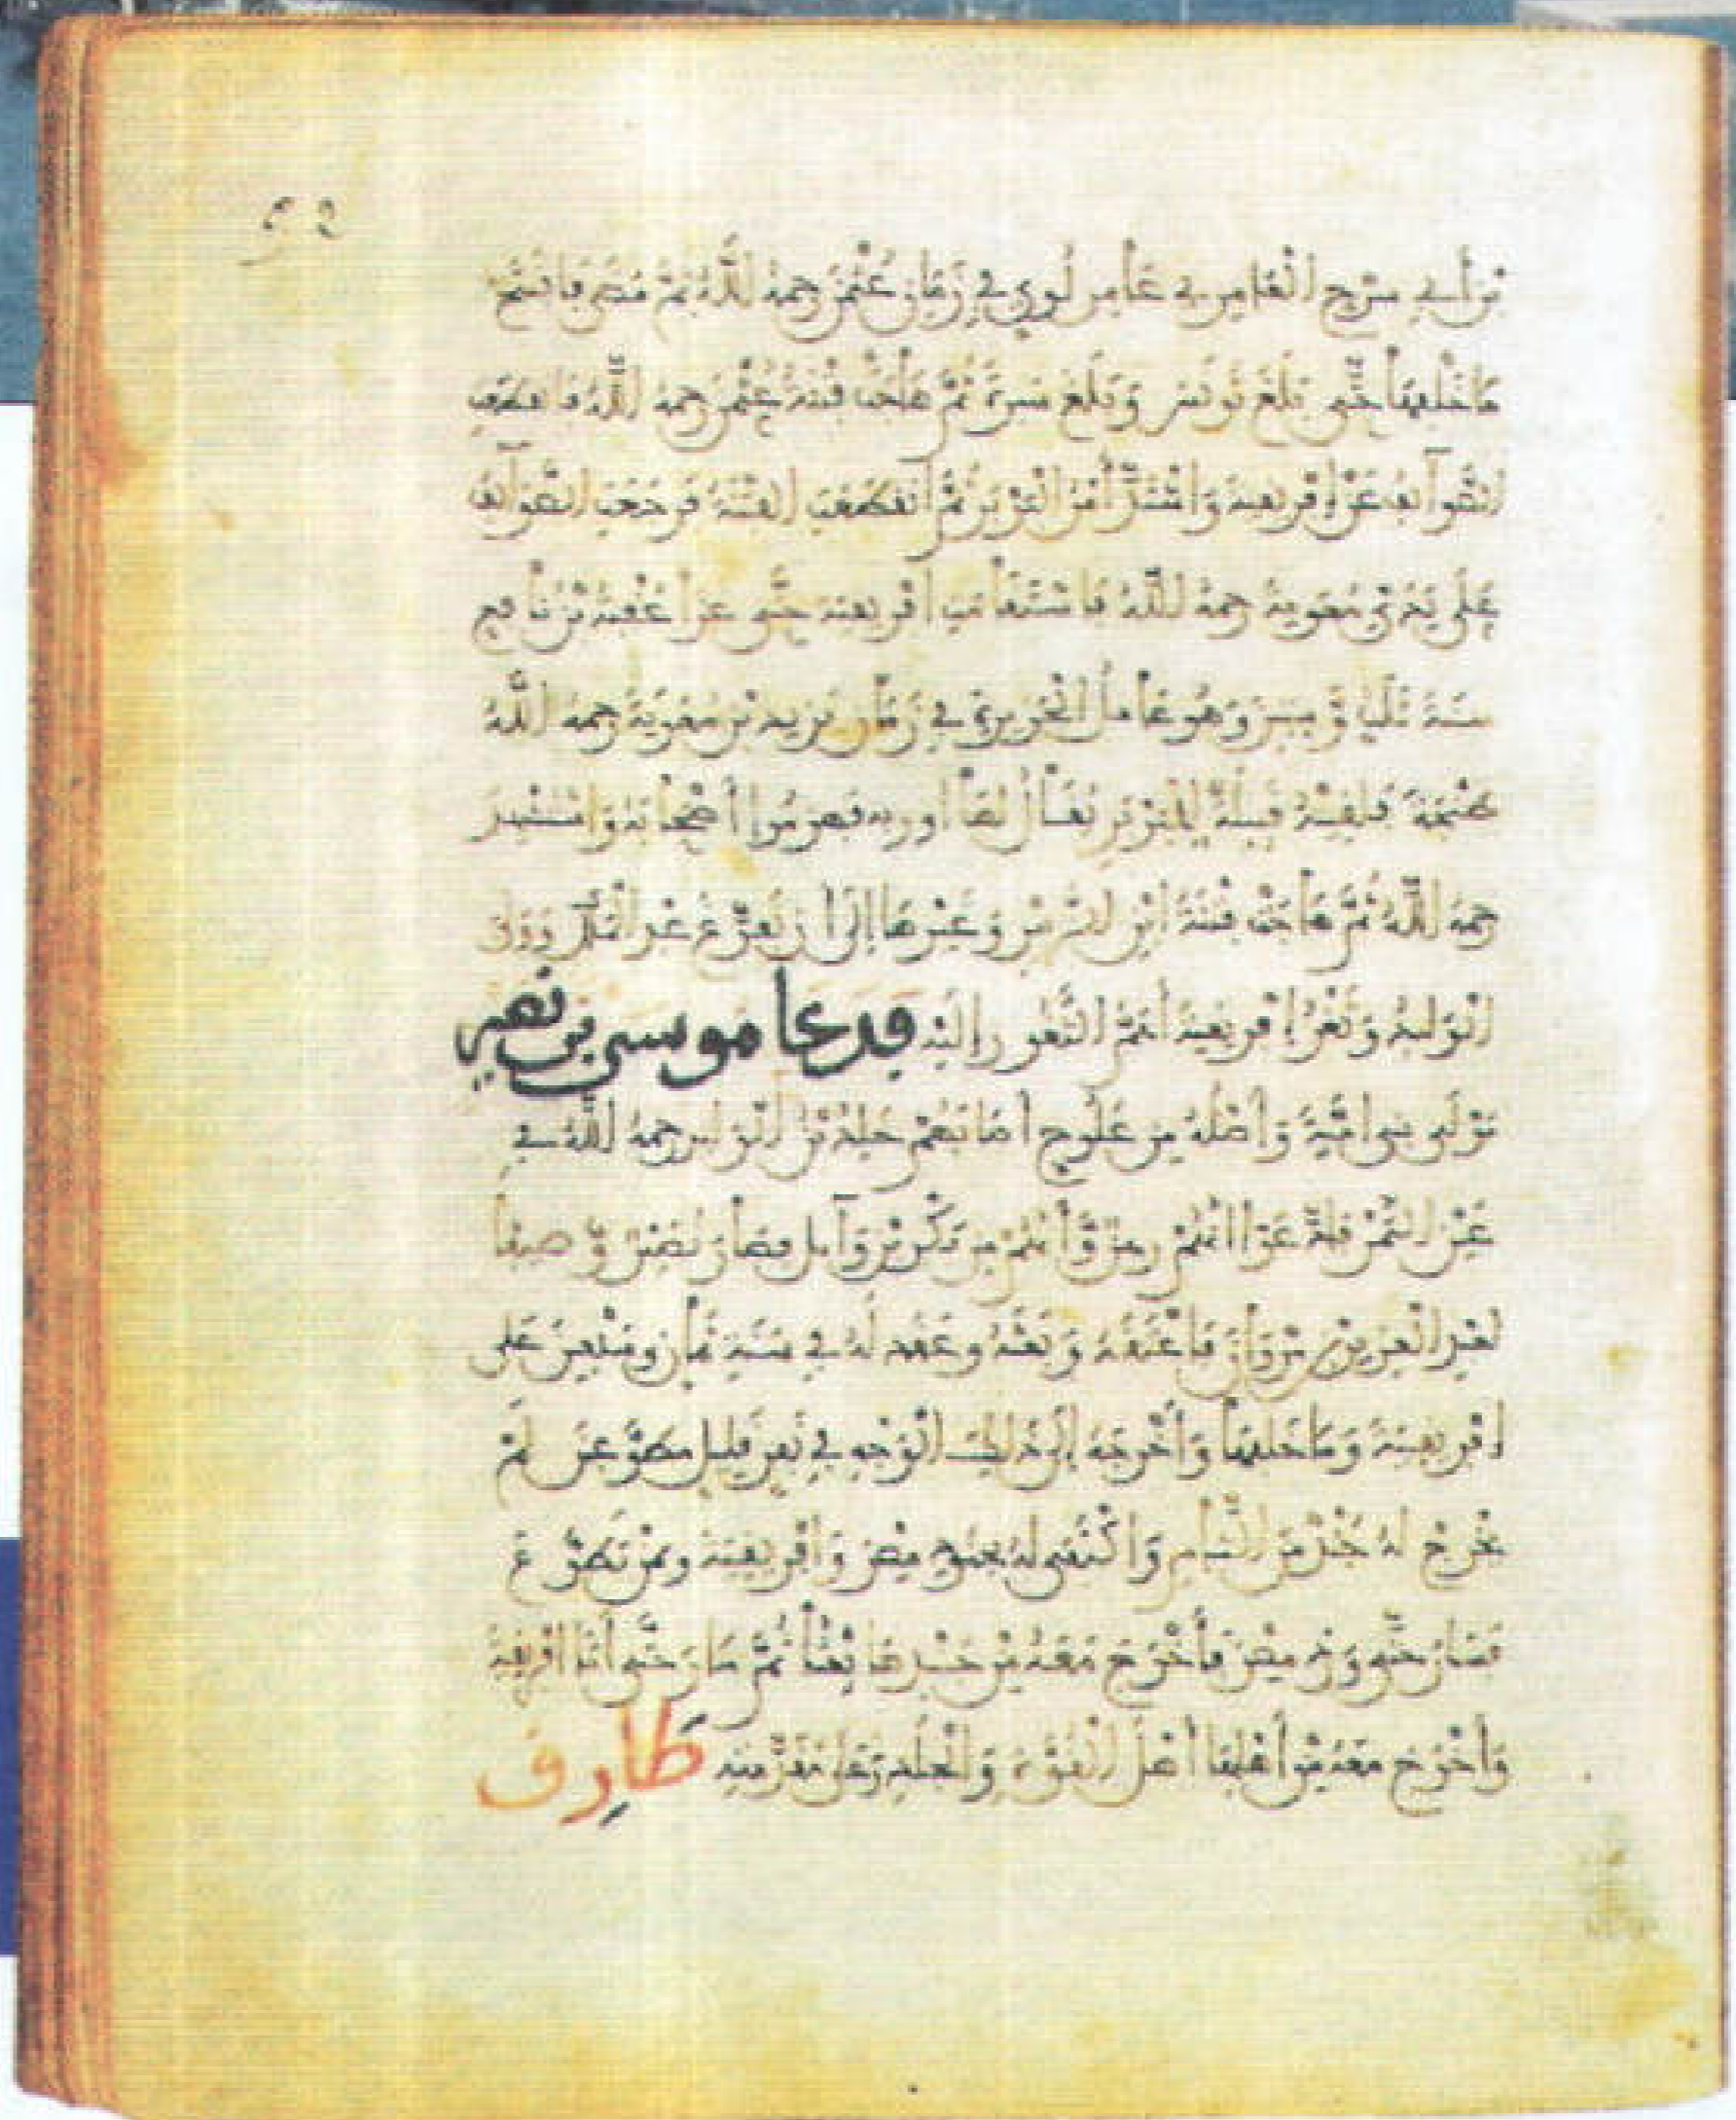 52
بْن أبي سرْح العامري عامر لوي في زمان عُثمن رحمه الله ثم مضى فافتتح
ما خلفها حتى بلغ تونس وبلغ سبرة ثم هاجت فتنة عثمن رحمه الله فانقطعت
الطوايف عن إفريقية واشتدّ أمر البربر ثم انقطعت الفتنة فرجعت الطوايف
على يدي معوية رحمه الله فاستقامت افريقية حتى غزا عُقبة بن نافع
سنة ثلث وستين وهو عامل في زمان يزيد بن معوية رحمه الله
طنجة فلقيته قبيلة للبربر يقال لها اوربه فهزموا أصحابه واستشهد
رحمه الله ثم هاجت فتنة ابن الزبير وغيرها إلى ان تفرّغ عبد الملك وولى
الوليد وثغر إفريقية أهم الثغور إليه فدعا موسى بن نصير
مولى بني امية وأصله من علوج أصابهم خلد بن الوليد رحمه الله في
عين التمر فادّعوا انهم رهن وأنهم من بكر بن وايل فصار نصير وصيفا
لعبد العزيز بن مروان فاعتقه وبعثه وعقد له في سنة ثمان وسبعين على
افريقية وما خلفها وأخرجه إلى ذلك الوجه في نفر قليل مطوعين لم
يخرج له جُند من الشام واكتفى له بجند مصر وافريقية ومن تطوّع
فسار حتى ورد مصر فأخرج معه من جندها بعثا ثم سار حتى أتا افريقية
وأخرج معه من أهلها أهل القوة والجلد وعلى مقدمته طارق